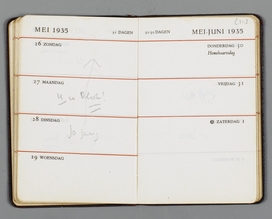 MEI 1935
31 DAGEN
26 ZONDAG
27 MAANDAG
28 DINSDAG
29 WOENSDAG
31 DAGEN
MEI-JUNI 1935
DONDERDAG 30
Hemelvaartsdag
VRIJDAG 31
ZATERDAG 1